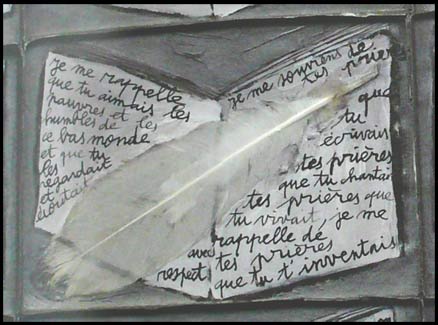 je me rappelle
que tu aimais les
pauvres et les
humbles de
ce bas monde
et que tu
les
regardait
et
écoutait
avec
respect
je me souviens de
tes prier
que
tu
écrivais
tes prières
que tu chantais
tes prières que
tu vivait, je me
rappelle de
tes prières
que tu t'inventais